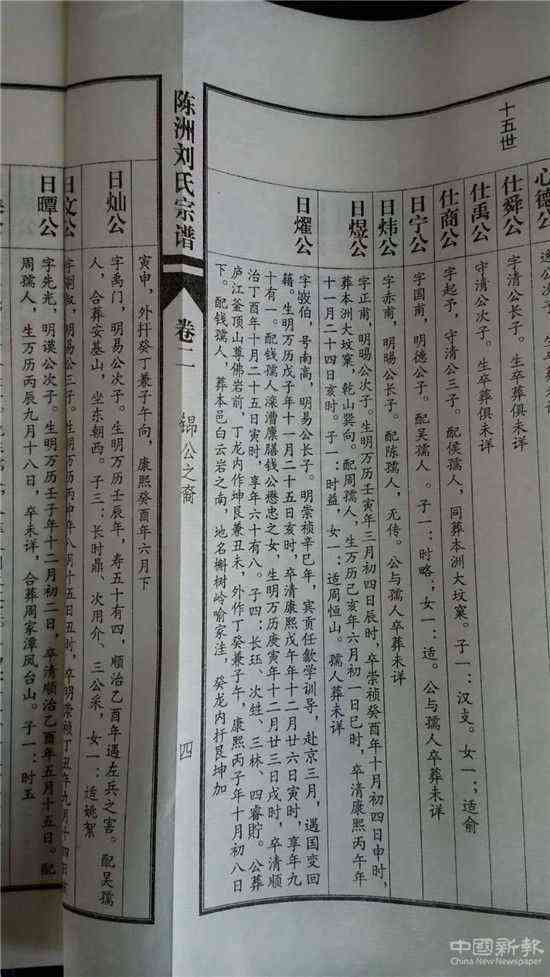 十五世
心德公
仕舜公
字清公长子。生卒葬俱未详
仕禹公
守清公次子。生卒葬俱未详
仕商公
字起予，守清公三子。配侯孺人，同葬本洲大坟窠。子一：汉支。女一：适俞
日宁公
字国甫，明德公子。配吴孺人。子一：时略；女一：适。公与孺人卒葬未详
日炜公
字赤甫，明暘公长子。配陈孺人，无传。公与孺人卒葬未详
日煜公
字正甫，明暘公次子。生明万历壬寅年三月初四日辰时，卒崇祯癸酉年十月初四日申时，
葬本洲大坟窠，乾山巽向。配周孺人，生万历己亥年六月初一日巳时，卒清康熙丙午年
十一月二十四日亥时。子一：时益，女一：适周恒山。孺人葬未详
日燿公
字弢伯，号南高，明易公长子。明崇祯辛巳年，宾贡任歙学训导，赴京三月，遇国变回
籍。生明万历戊子年十一月二十五日亥时，卒清康熙戊午年十二月廿六日寅时，享年九
十有一。配钱孺人溧漕廪膳钱公懋忠之女，生明万历庚寅年十二月廿三日戌时，卒清顺
治丁酉年十月二十五日寅时，享年六十有八。子四：长珏、次甡、三林、四睿貯。公葬
庐江釜顶山尊佛岩前，丁龙内作坤艮兼丑未，外作丁癸兼子午，康熙丙子年十月初八日
下。配钱孺人，葬本邑白云岩之南，地名槲树岭喻家洼，癸龙内扦艮坤加
陈洲刘氏宗谱
卷二
锦公之裔
四
寅申，外扦癸丁兼子午向，康熙癸酉年六月下
日灿公
字禹门，明易公次子。生明万历壬辰年，寿五十有四，顺治乙酉年遇左兵之害。配吴孺
人，合葬安基山，坐东朝西。子三：长时鼎、次用介、三公采，女一：适姚絮
日文公
明易公三子。生明万历丙申年八月十五日丑时，卒明崇祯丁丑年九月十四日
日曋公
字先光，明谟公次子。生明万历壬子年十二月初二日，卒清顺治乙酉年五月十五日。配
周孺人，生万历丙辰九月十八日，卒未详，合葬周家潭凤台山。子一：时玉
中國新報
China New Newspaper